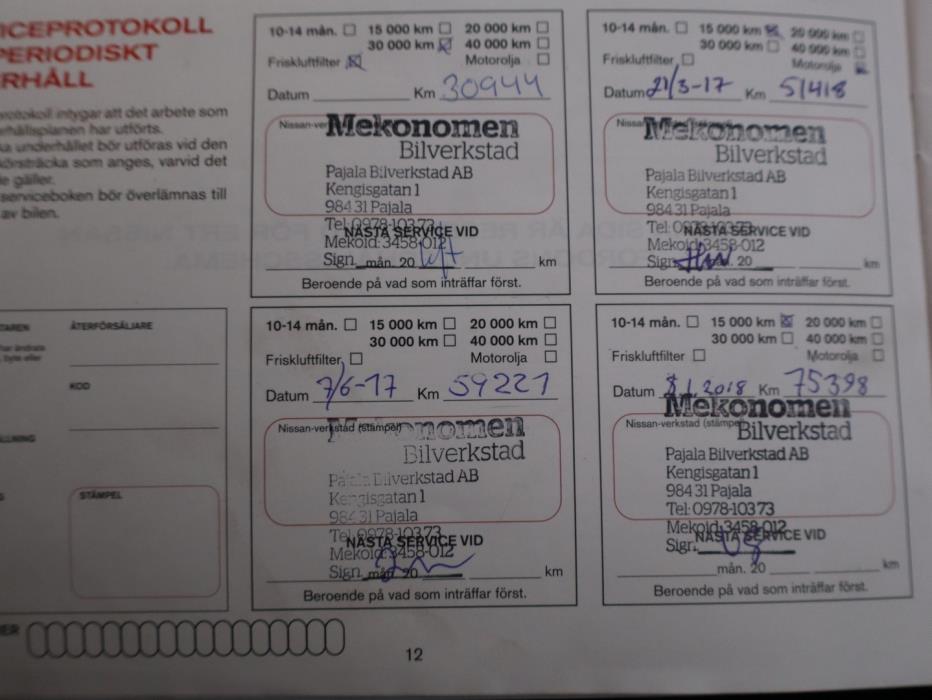 ICEPROTOKOLL
PERIODISKT
ERHÅLL
protokoll intygar att det arbete som
erhållsplanen har utförts.
ka underhållet bör utföras vid den
körsträcka som anges, varvid det
de gäller.
serviceboken bör överlämnas till
av bilen.
10-14 mån. 15 000 km 20 000 km
30 000 km 40 000 km
Friskluftfilter Motorolja
Datum Km 30944
Nissan-ver
Mekonomen
Bilverkstad
Pajala Bilverkstad AB
Kengisgatan 1
984 31 Pajala
Tel: 0978-103 73
NÄSTA SERVICE VID
Mekoid: 3458-012
Sign. mån. 20 km
Beroende på vad som inträffar först.
10-14 mån. 15 000 km 20 000 km
30 000 km 40 000 km
Friskluftfilter Motorolja
Datum 21/3-17 Km 51418
Nissan
Mekonomen
Bilverkstad
Pajala Bilverkstad AB
Kengisgatan 1
984 31 Pajala
Tel: 0978-103 73
NÄSTA SERVICE VID
Mekoid: 3458-012
Sign. mån. 20 km
Beroende på vad som inträffar först.
ÅTERFÖRSÄLJARE
KOD
STÄMPEL
10-14 mån. 15 000 km 20 000 km
30 000 km 40 000 km
Friskluftfilter Motorolja
Datum 7/6-17 Km 59221
Nissan-verkstad (stämpel)
Mekonomen
Bilverkstad
Pajala Bilverkstad AB
Kengisgatan 1
984 31 Pajala
Tel: 0978-103 73
NÄSTA SERVICE VID
Mekoid: 3458-012
Sign. mån. 20 km
Beroende på vad som inträffar först.
10-14 mån. 15 000 km 20 000 km
30 000 km 40 000 km
Friskluftfilter Motorolja
Datum 8/1.2018 Km 75398
Mekonomen
Nissan-verkstad (stämpel
Bilverkstad
Pajala Bilverkstad AB
Kengisgatan 1
984 31 Pajala
Tel: 0978-103 73
Mekoid: 3458-012
NÄSTA SERVICE VID
Sign.
mån. 20 km
Beroende på vad som inträffar först.
12